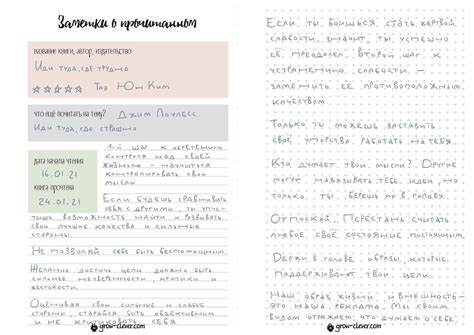 Заметки о прочитанном
название книги, автор, издательство
Иди туда, где трудно
Тае Юн Ким
что ещё почитать на тему? Джим Лоулесс
Иди туда, где страшно
дата начала чтения
16.01.21
книга прочтена
24.01.21
1-й шаг к обретению
контроля над своей
жизнью – научиться
контролировать свои
мысли
Если будешь сравнивать
себя с другими, ты упус-
тишь возможность найти и развивать
свои лучшие качества и сильные
стороны.
Не позволяй себе быть беспомощным.
Желание достичь цели должно быть
сильнее неуверенности, нечестности
и критики.
Оценивай свои сильные и слабые
стороны, старайся быть объективным
и не критиковать себя.
grow-clever.com
Если ты боишься стать жертвой
слабости, значит, ты успешно
её преодолел. Второй шаг к
устранению слабости –
заменить её противоположным
качеством
Только ты можешь заставить
своё упорство работать на тебя.
Кто думает твои мысли? Другие
могут навязывать тебе идеи, но
только ты берёшь их в голову.
Отпускай. Перестань считать
любое своё состояние постоянным.
Держи в голове образы, которые
поддерживают твои цели.
Наш образ жизни и внешность –
это наша реклама. Мы своим
видом отражаем, что думаем о себе.
grow-clever.com